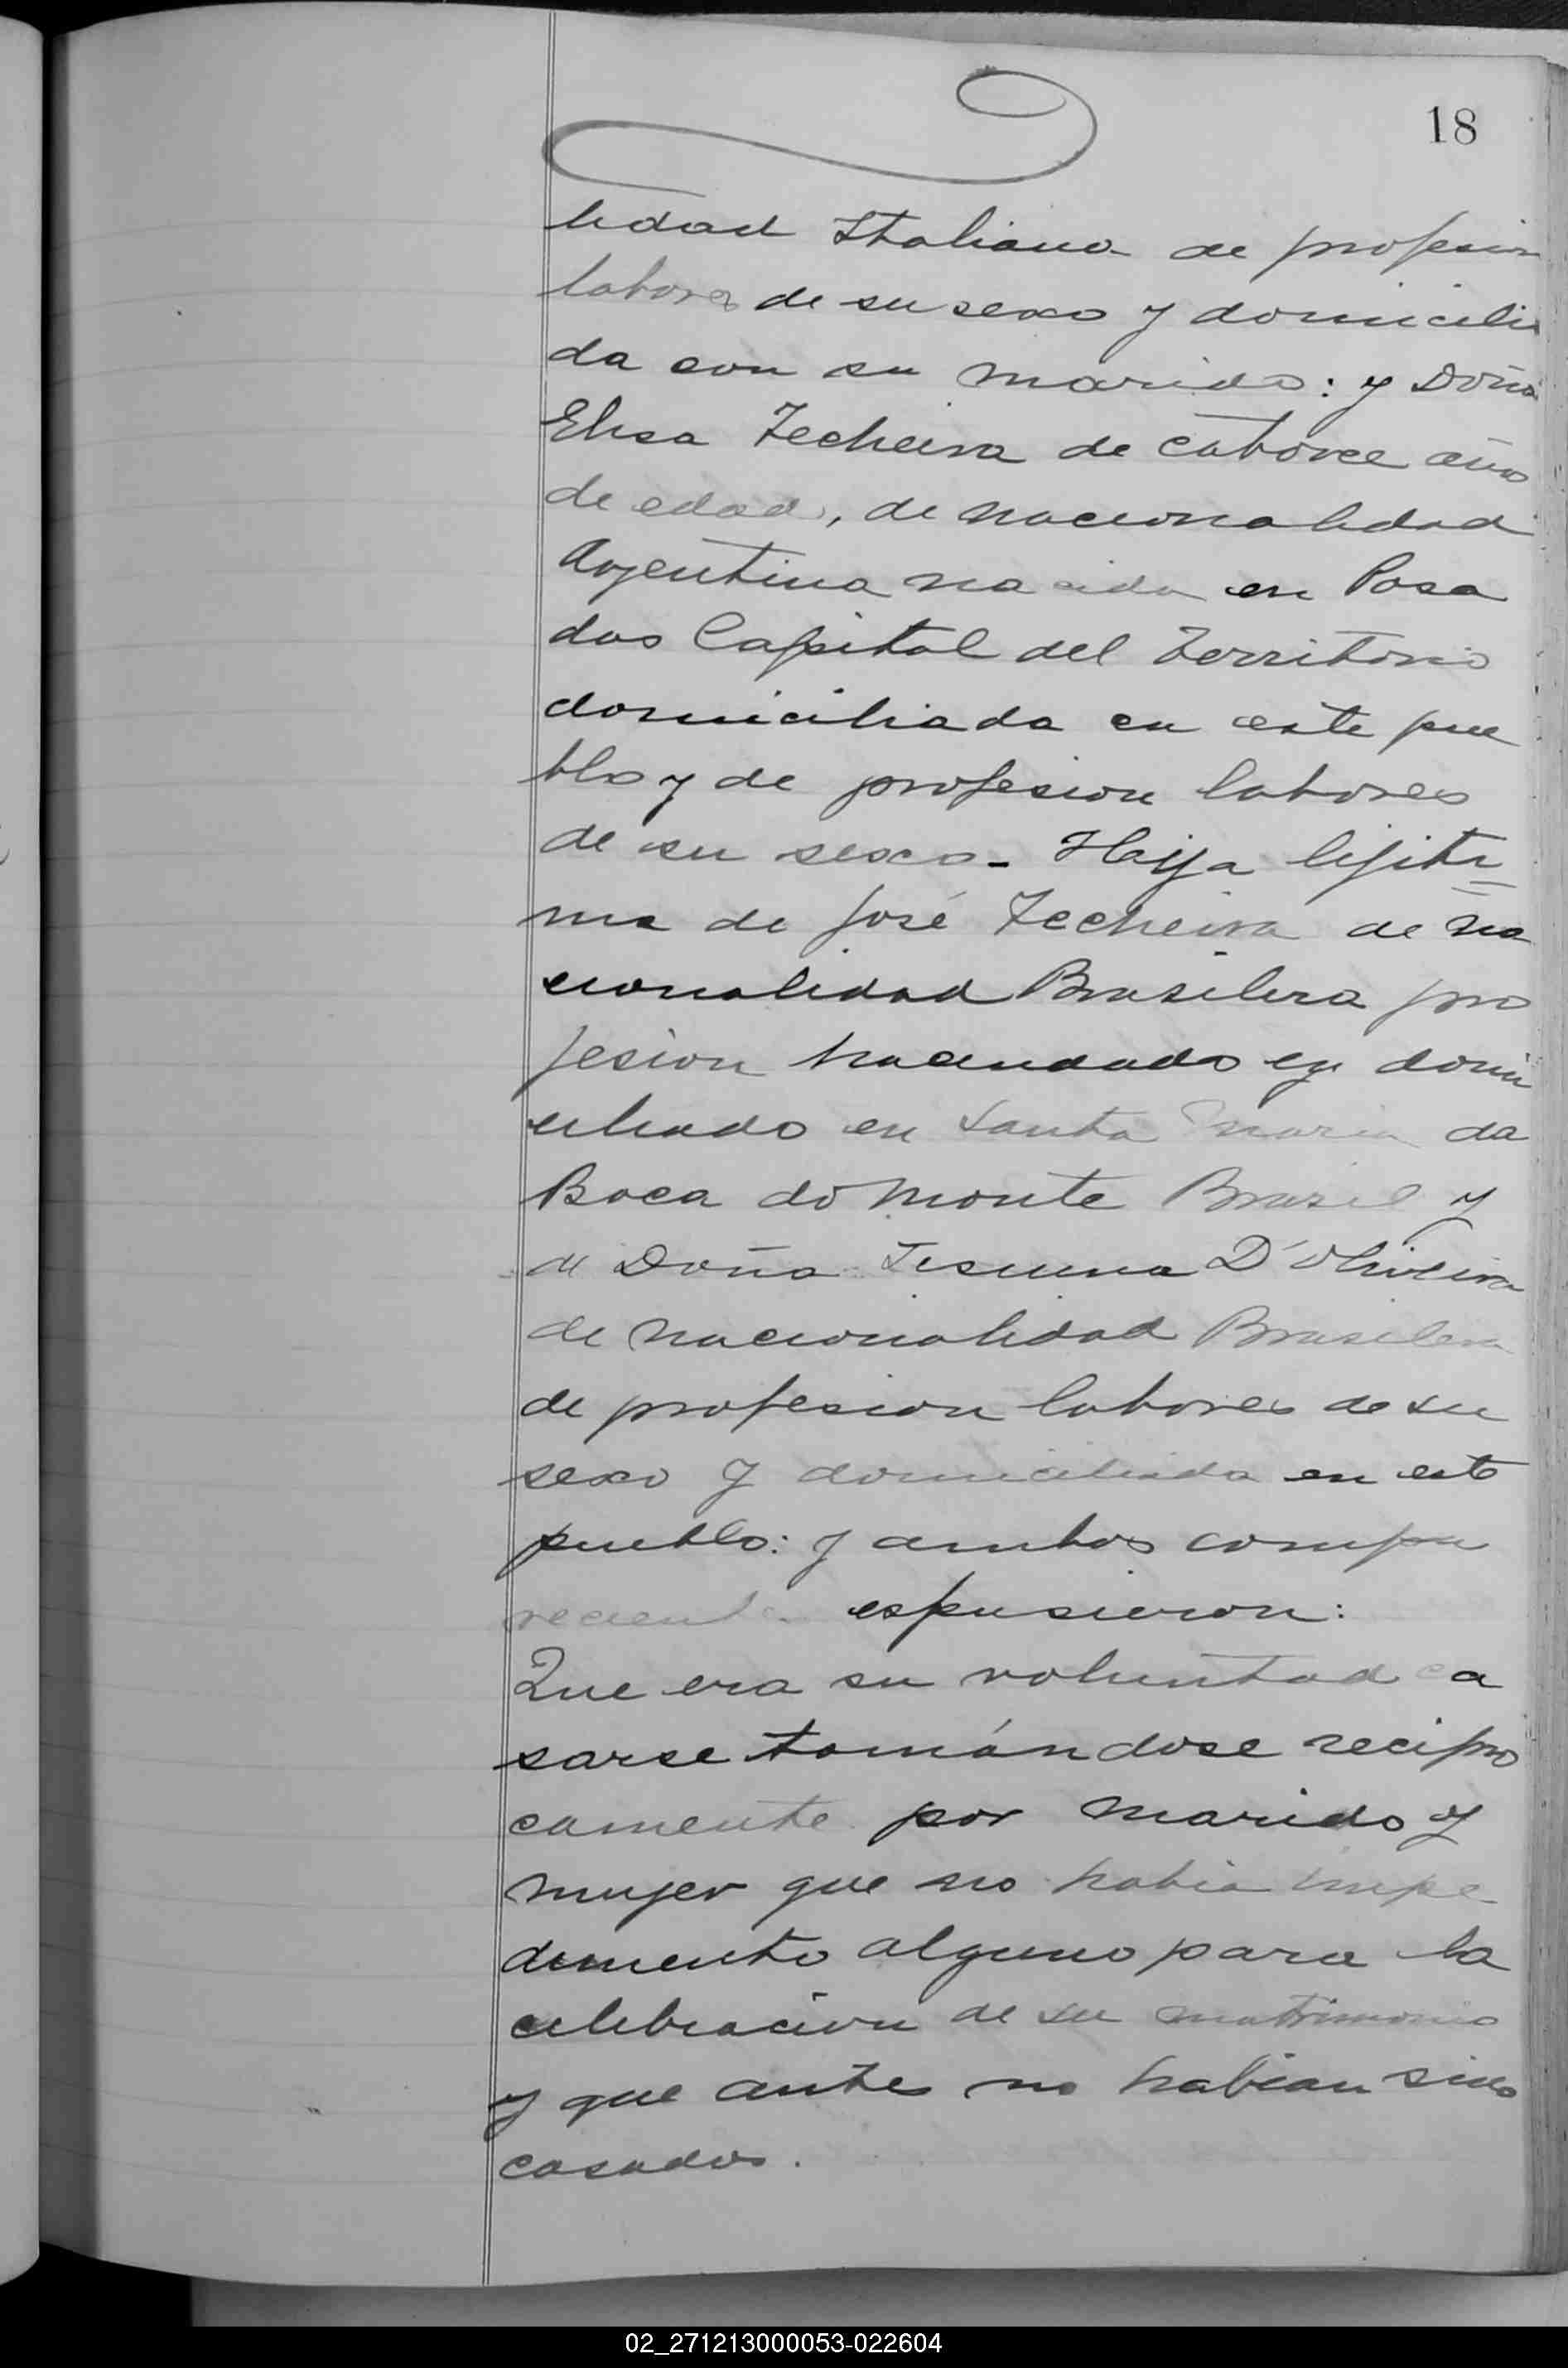 18
lidad Italiana de profesion
labores de su sexo y domicilia
da con su marido: y Doña
Elisa Techeira de catorce años
de edad, de nacionalidad
Argentina nacida en Posa
das Capital del Territorio
domiciliada en este pue
blo y de profesion labores
de su sexo - Hija lejiti=
ma de José Techeira de na
cionalidad Brasilera pro
fesion hacendado y domi
ciliado en Santa Maria da
Boca do Monte Brasil y
de Doña D'Oliveira
de nacionalidad Brasilera
de profesion labores de su
sexo y domiciliada en este
pueblo: y ambos compa
recientes espusieron:
Que era su voluntad ca
sarse tomándose recipro
camente por marido y
mujer que no habia impe
dimento alguno para la
celebracion de su matrimonio
y que antes no habian sido
casados.
02_271213000053-022604